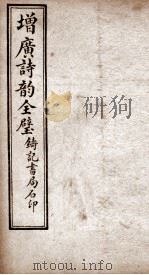 增廣詩韵全璧
鑄記書局石印
mtoou.info